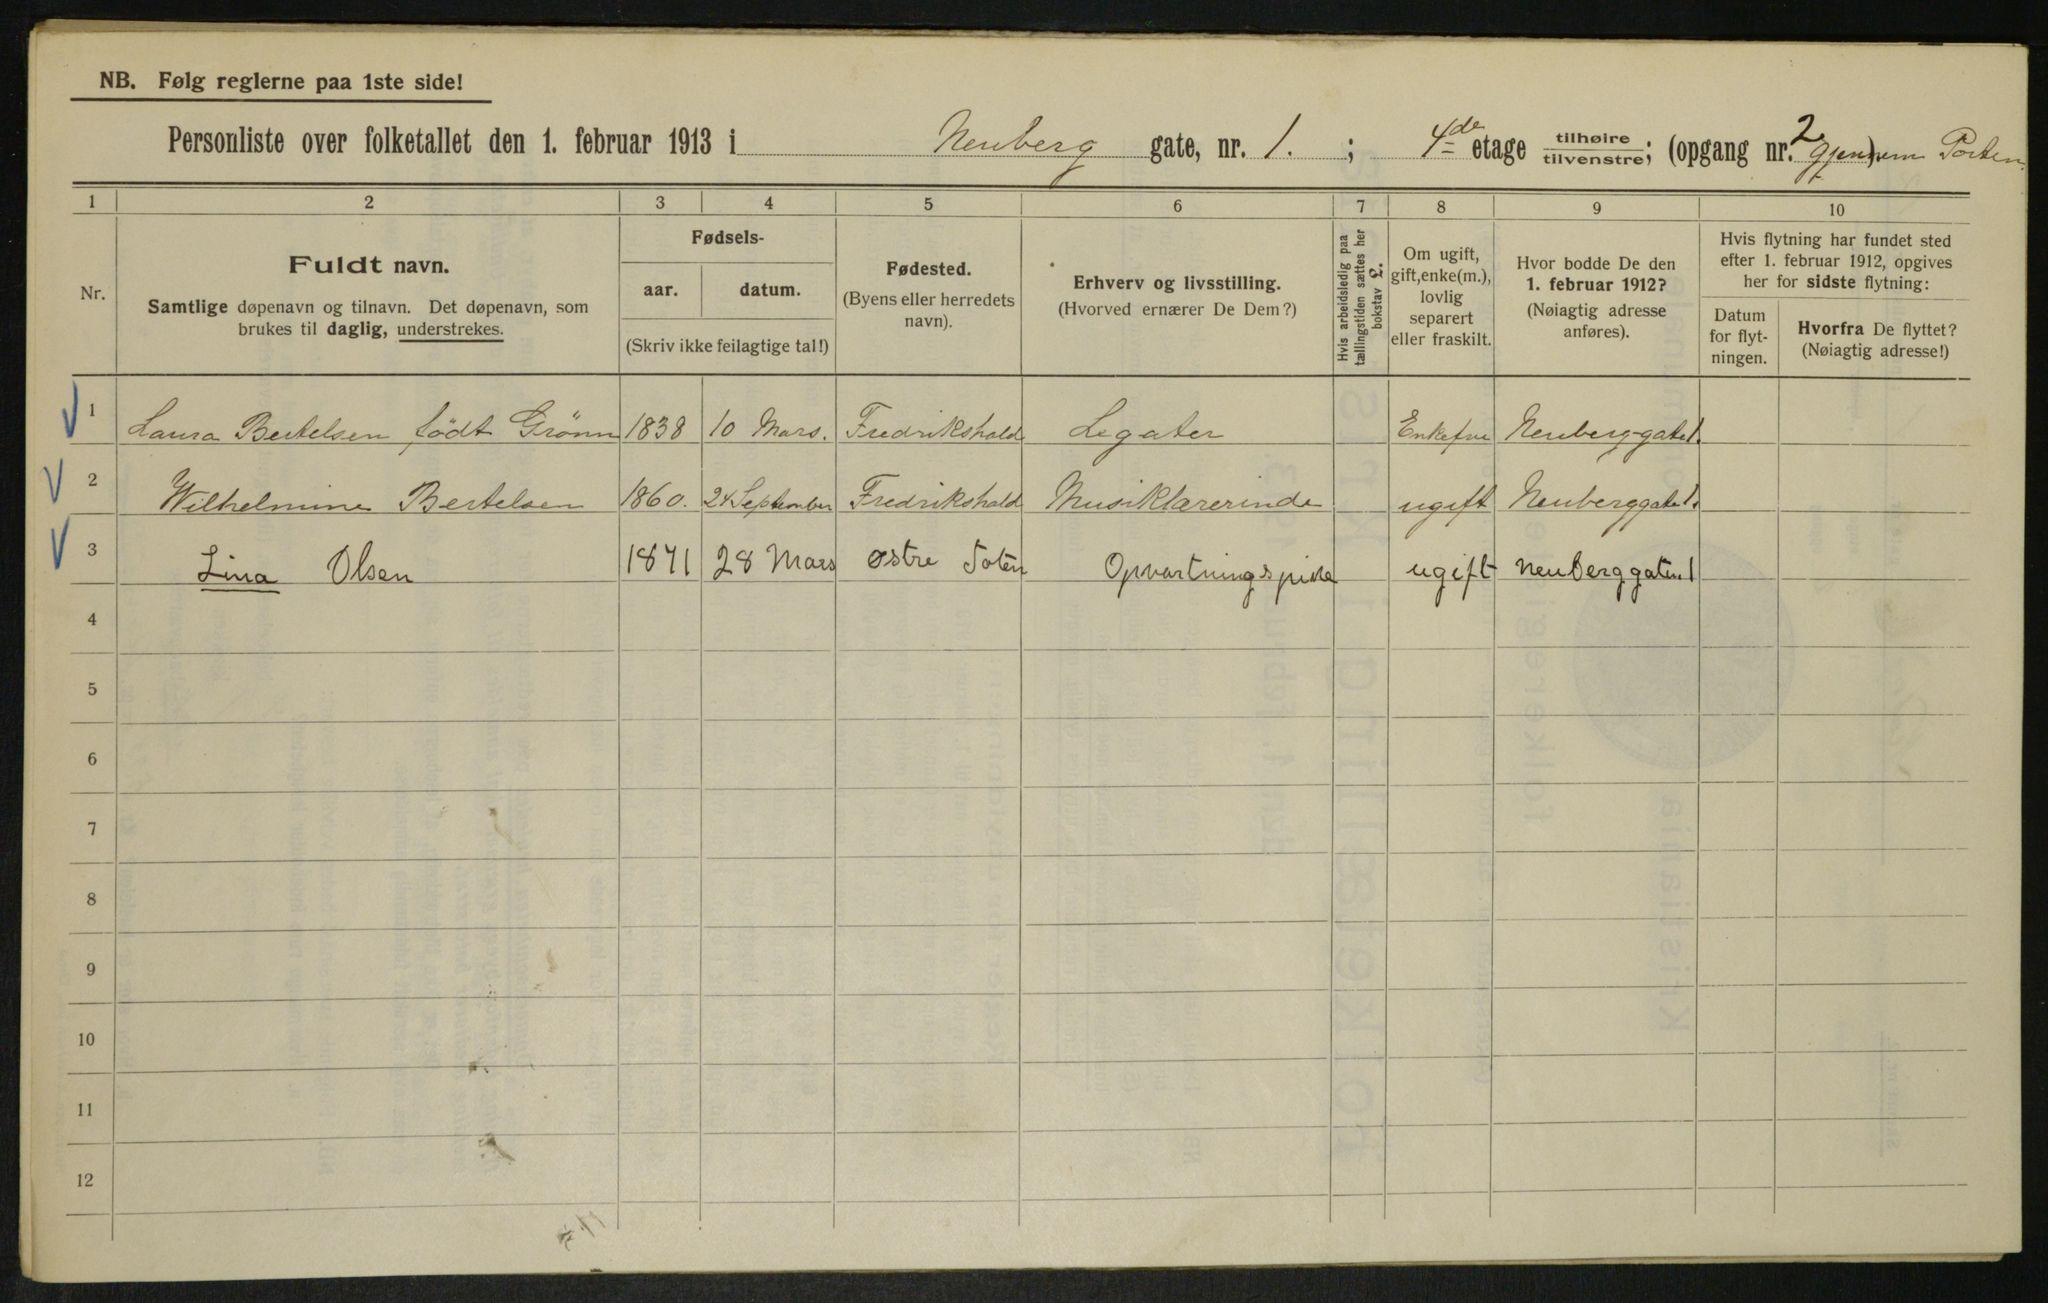 NB. Følg reglerne paa 1ste side!
Personliste over folketallet den 1. februar 1913 i Neuberg gate, nr. 1. ; 4de etage tilhøire/tilvenstre; (opgang nr. 2 gjennem Porten.
1 2 3 4 5 6 7 8 9 10
Nr.
Fuldt navn.
Samtlige døpenavn og tilnavn. Det døpenavn, som
brukes til daglig, understrekes.
Fødsels-
aar. datum.
(Skriv ikke feilagtige tal!)
Fødested.
(Byens eller herredets
navn).
Erhverv og livsstilling.
(Hvorved ernærer De Dem?)
Hvis arbeidsledig paa
tællingstiden sættes her
bokstav L.
Om ugift,
gift, enke(m.),
lovlig
separert
eller fraskilt.
Hvor bodde De den
1. februar 1912?
(Nøiagtig adresse
anføres).
Hvis flytning har fundet sted
efter 1. februar 1912, opgives
her for sidste flytning:
Datum
for flyt-
ningen.
Hvorfra De flyttet?
(Nøiagtig adresse!)
1 Laura Bertelsen født Grönn 1838 10 Mars. Fredrikshald Legater Enkefru Neuberg-gate 1.
2 Wilhelmine Bertelsen 1860. 24 September Fredrikshald Musiklærerinde ugift Neuberggate 1.
3 Lina Olsen 1871 28 Mars østre Toten Opvartningspike ugift Neuberggaten 1
4
5
6
7
8
9
10
11
12